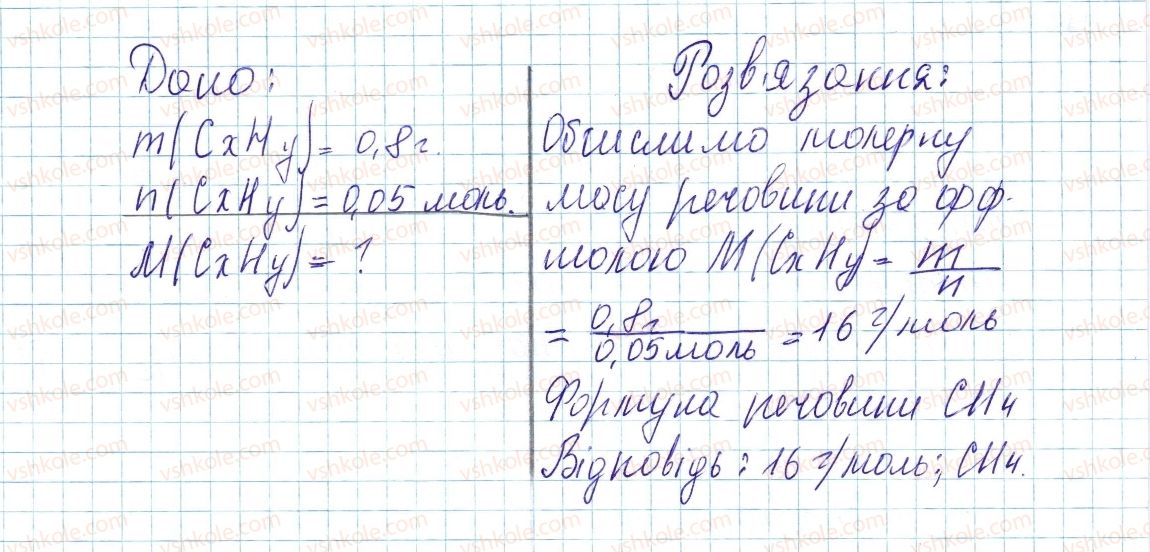 Дано:
m(CxHy) = 0,8 г.
n(CxHy) = 0,05 моль.
M(CxHy) = ?
Розв'язання:
Обчислимо молярну
масу речовини за фор-
мулою M(CxHy) = m/n
= 0,8г/0,05моль = 16 г/моль
Формула речовини CH4
Відповідь: 16 г/моль; CH4.
vshkole.com